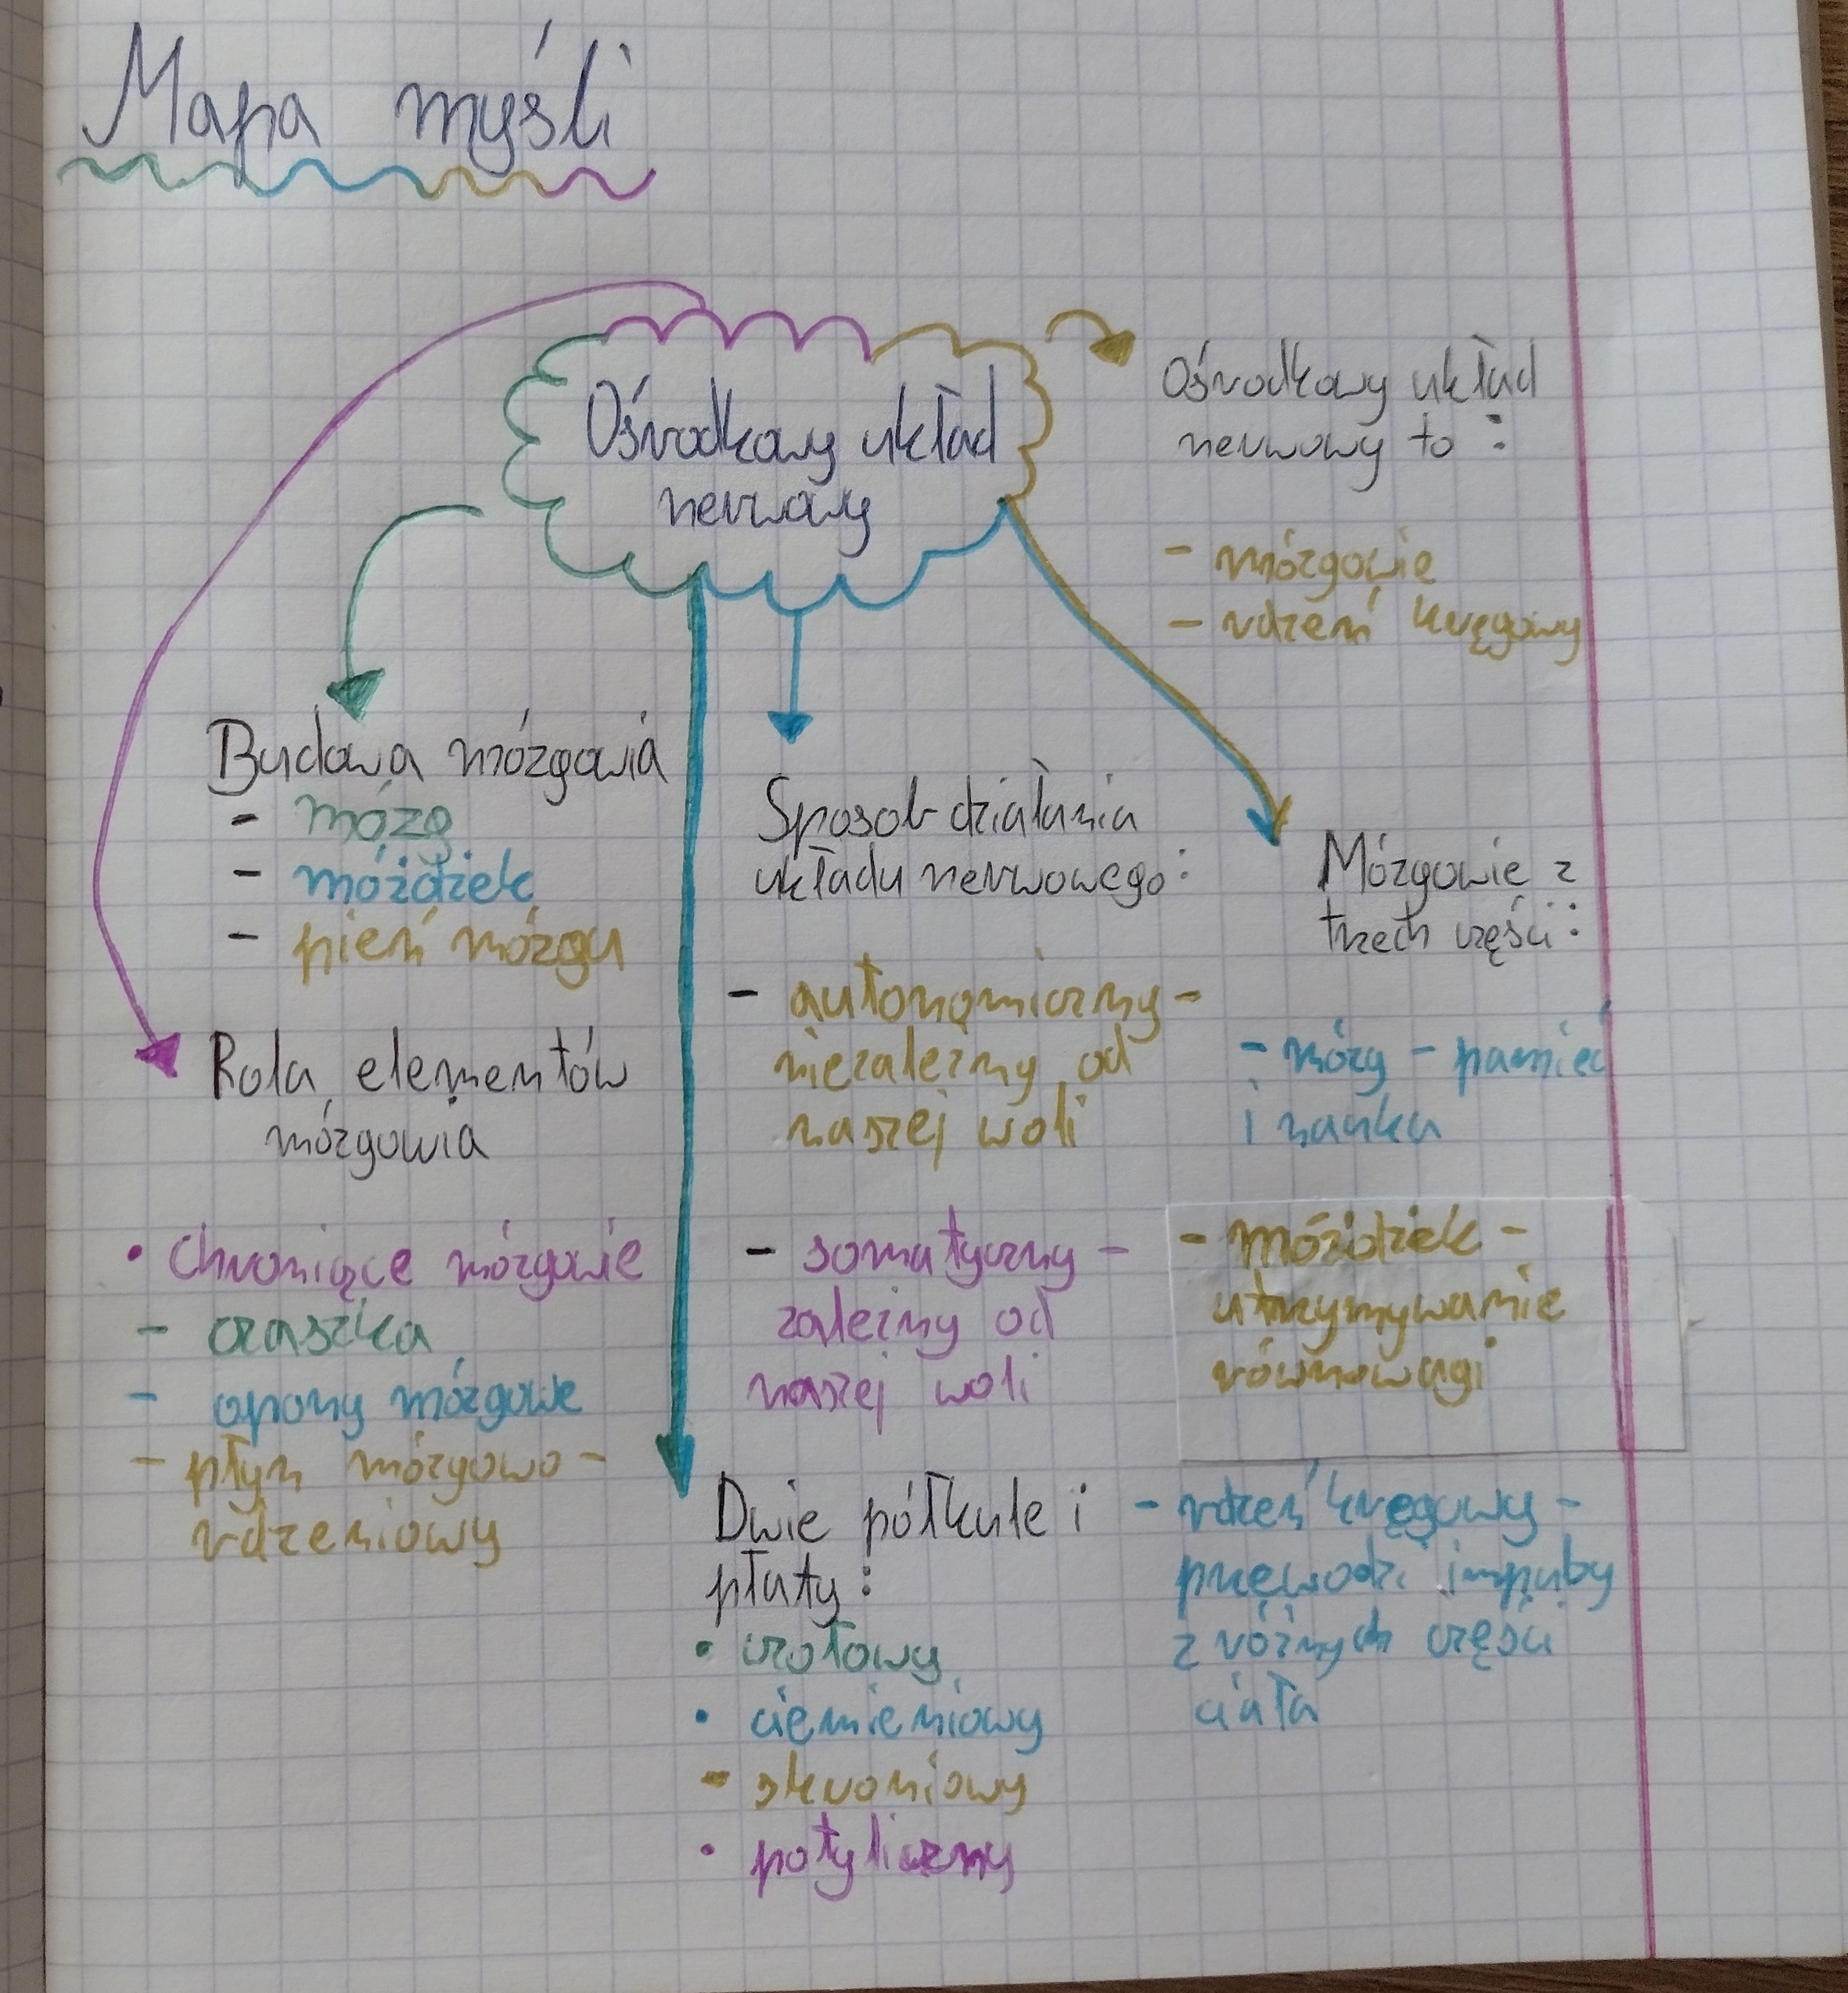 Mapa myśli
Ośrodkowy układ
nerwowy
Ośrodkowy układ
nerwowy to :
- mózgowie
- rdzeń kręgowy
Budowa mózgowia
- mózg
- móżdżek
- pień mózgu
Rola elementów
mózgowia
• Chroniące mózgowie
- czaszka
- opony mózgowe
- płyn mózgowo-
rdzeniowy
Sposob działania
układu nerwowego:
- autonomiczny -
niezależny od
naszej woli
- somatyczny -
zależny od
naszej woli
Dwie półkule i
płaty:
• czołowy
• ciemieniowy
- skroniowy
• potyliczny
Mózgowie z
trzech części:
- mózg - pamięć
i nauka
- móżdżek -
utrzymywanie
równowagi
- rdzeń kręgowy -
przewodzi impulsy
z różnych części
ciała